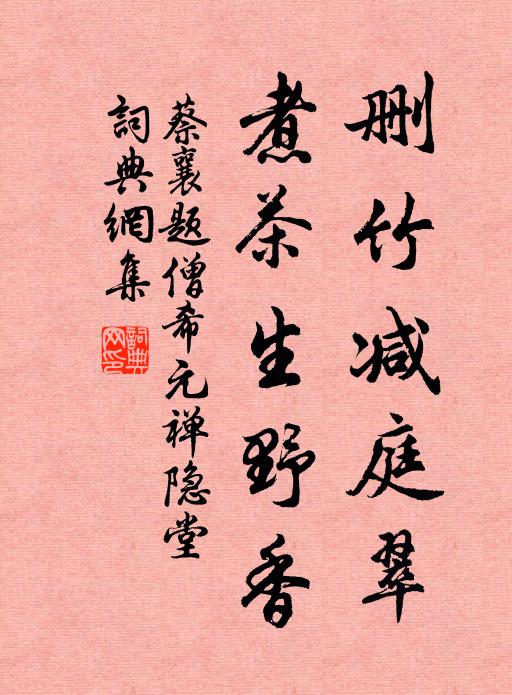 删竹减庭翠
煮茶生野香
蔡襄题僧希元禅隐堂
詞典網集
詞典网印